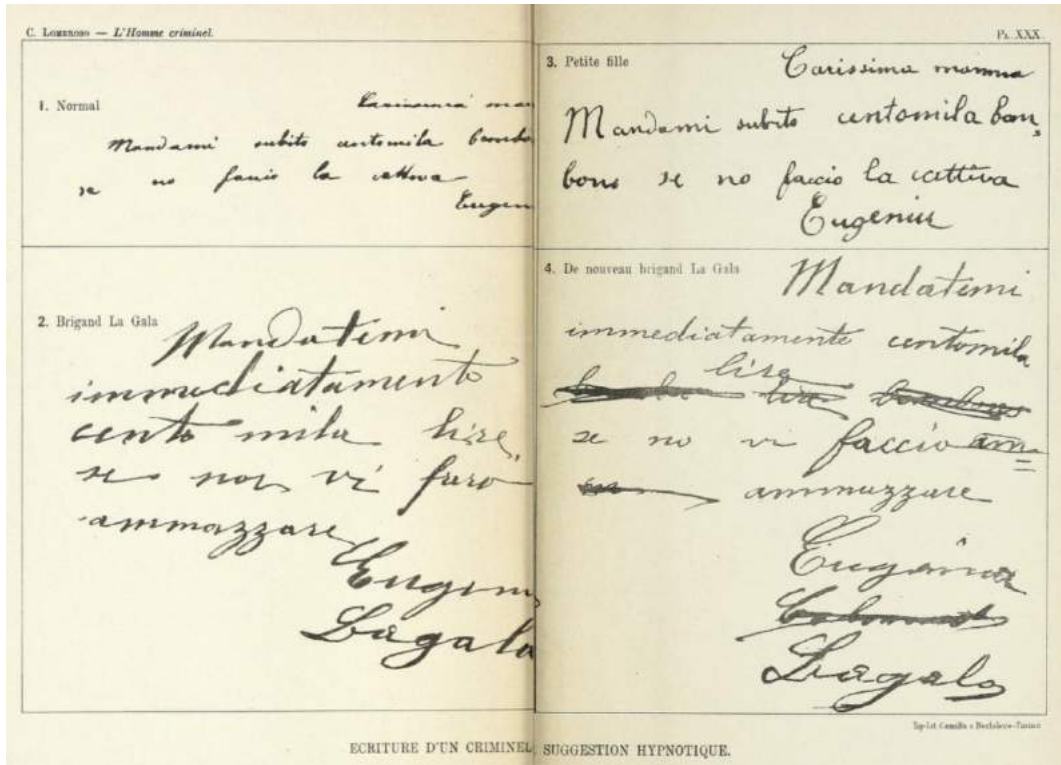 C. Lombroso — L'Homme criminel.
Pl. XXX.
1. Normal
Carissima mam
Mandami subito centomila bonbo
se no faccio la cattiva
Eugen
2. Brigand La Gala
Mandatemi
immediatamente
cento mila lire
se non vi faro
ammazzare
Eugeni
Lagala
3. Petite fille
Carissima mamma
Mandami subito centomila bon
bons se no faccio la cattiva
Eugeniu
4. De nouveau brigand La Gala
Mandatemi
immediatamente centomila
lire
lire
se no vi faccio am=
ammazzare
Eugenia
Lagala
Tip-Lit Camilla e Bertolero-Torino
ECRITURE D'UN CRIMINEL, SUGGESTION HYPNOTIQUE.